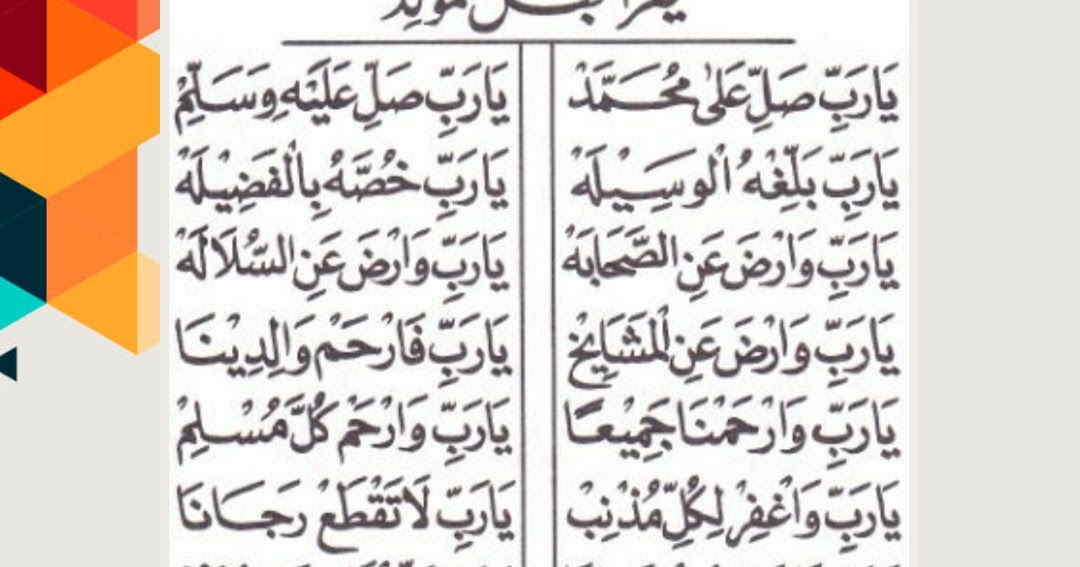 يَارَبِّ صَلِّ عَلٰى مُحَمَّدْ يَارَبِّ صَلِّ عَلَيْهِ وَسَلِّمْ
يَارَبِّ بَلِّغْهُ الْوَسِيْلَهْ يَارَبِّ خُصَّهُ بِالْفَضِيْلَهْ
يَارَبِّ وَارْضَ عَنِ الصَّحَابَهْ يَارَبِّ وَارْضَ عَنِ السُّلَالَهْ
يَارَبِّ وَارْضَ عَنِ الْمَشَايِخْ يَارَبِّ فَارْحَمْ وَالِدِيْنَا
يَارَبِّ وَارْحَمْنَا جَمِيْعًا يَارَبِّ وَارْحَمْ كُلَّ مُسْلِمْ
يَارَبِّ وَاغْفِرْ لِكُلِّ مُذْنِبْ يَارَبِّ لَا تَقْطَعْ رَجَانَا